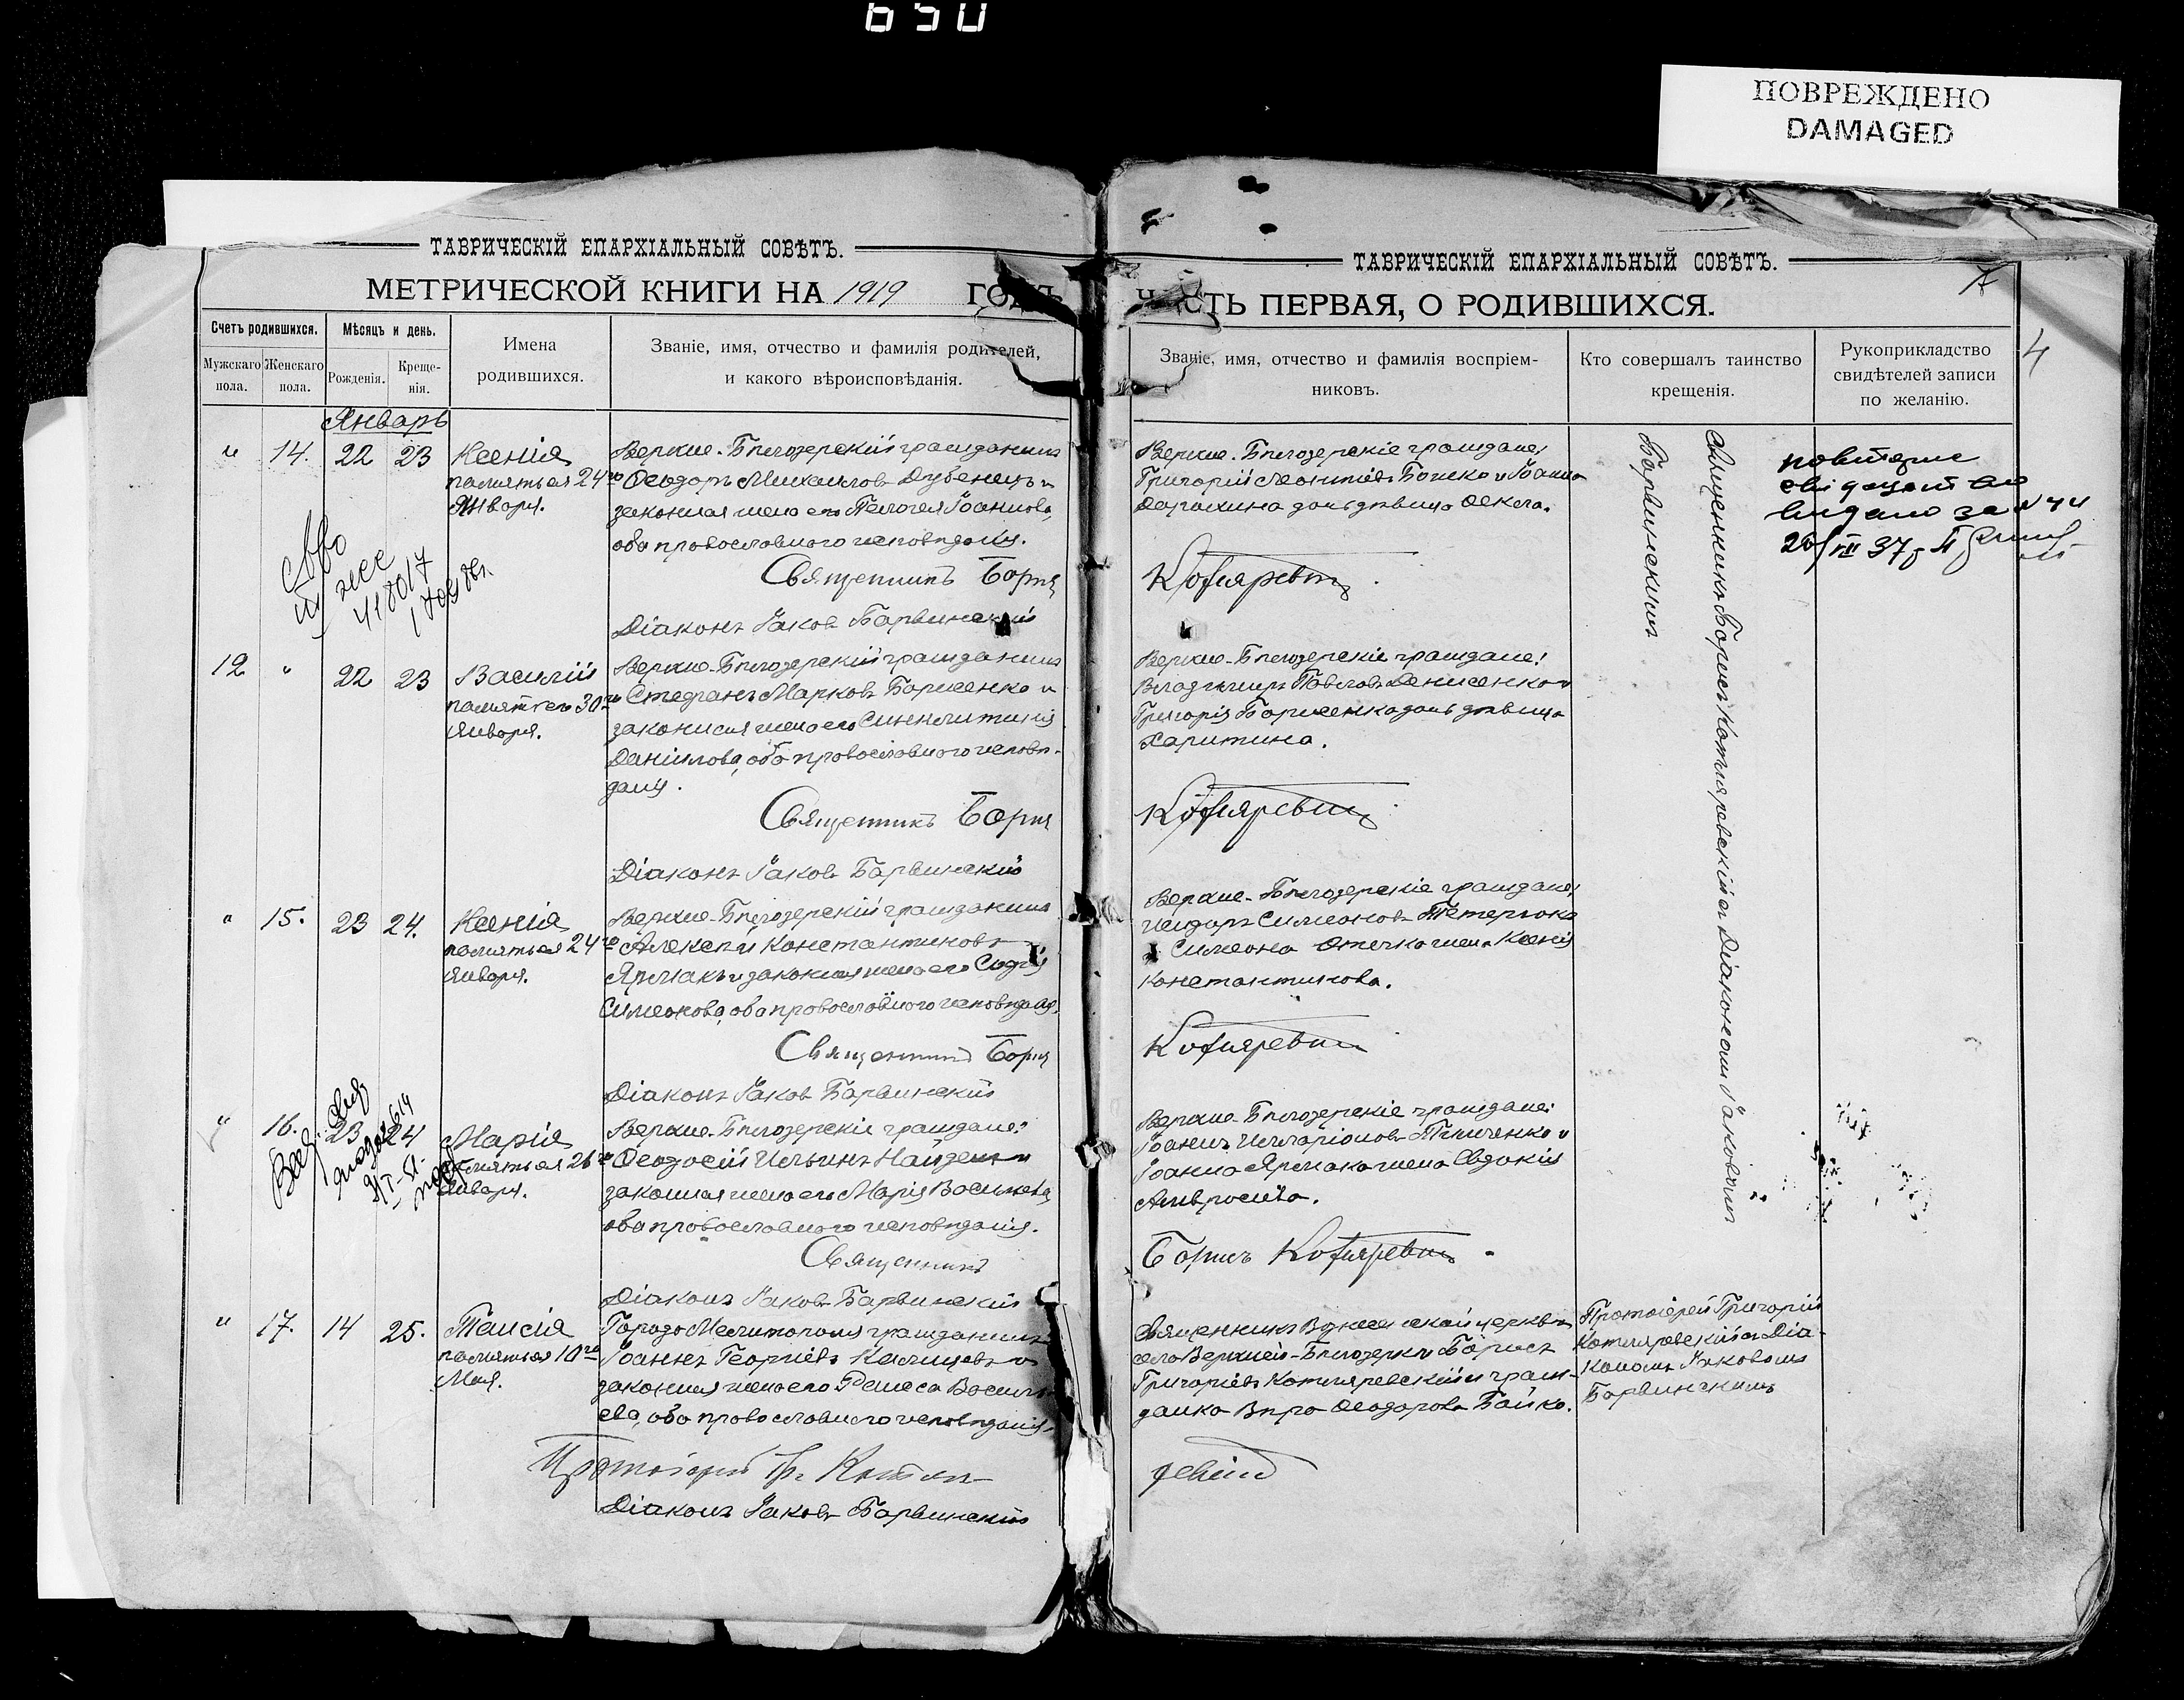 650
ПОВРЕЖДЕНО
DAMAGED
ТАВРИЧЕСКІЙ ЕПАРХІАЛЬНЫЙ СОВѢТЪ.
МЕТРИЧЕСКОЙ КНИГИ НА 1919 ГОДЪ
Счетъ родившихся.
Мужскаго пола.
Женскаго пола.
Мѣсяцъ и день.
Рожденія.
Креще-
нія.
Имена
родившихся.
Званіе, имя, отчество и фамилія родителей,
и какого вѣроисповѣданія.
Январь
" 14. 22 23
Ксенія
память ея 24го
Января.
Верхне-Бѣлозерскій гражданинъ
Ѳеодоръ Михаиловъ Дубенецъ и
законная жена его Пелагея Іоаннова,
оба православного исповѣданія.
Священникъ Борис
Діаконъ Іаковъ Барвинскій
12 " 22 23
Василій
память его 30го
Января.
Верхне-Бѣлозерскій гражданинъ
Стефанъ Марковъ Борисенко и
законная жена его Синклитикія
Даніилова, оба православного исповѣ-
данія.
Священникъ Борис
Діаконъ Іаковъ Барвинскій
" 15. 23 24.
Ксенія
память ея 24го
Января.
Верхне-Бѣлозерскій гражданинъ
Алексѣй Константиновъ
Ярмакъ и законная жена его Софія
Симеонова, оба православного исповѣданія.
Священникъ Борис
Діаконъ Іаковъ Барвинскій
" 16. 23 24
Марія
память ея 26го
Января.
Верхне-Бѣлозерскіе граждане:
Ѳеодосій Ильинъ Найдены и
законная жена его Марія Васильева,
оба православного исповѣданія.
Священникъ
Діаконъ Іаковъ Барвинскій
" 17. 14 25.
Таисія
память ея 10го
Мая.
Города Мелитополя гражданинъ
Іоаннъ Георгіевъ и
законная жена его Раиса Василь-
ева, оба православного исповѣданія.
Протоіерей Гр. Котля-
Діаконъ Іаковъ Барвинскій
ТАВРИЧЕСКІЙ ЕПАРХІАЛЬНЫЙ СОВѢТЪ.
ЧАСТЬ ПЕРВАЯ, О РОДИВШИХСЯ.
4
Званіе, имя, отчество и фамилія воспріем-
никовъ.
Кто совершалъ таинство
крещенія.
Рукоприкладство
свидѣтелей записи
по желанію.
Верхне-Бѣлозерскіе граждане:
Григорій Леонтіевъ и Іоанна
дочь дѣвица Ѳекла.
Котляревскій
Верхне-Бѣлозерскіе граждане:
Владиміръ Павловъ Денисенко и
Григорія Борисенка дочь дѣвица
Харитина.
Котляревскій
Верхне-Бѣлозерскіе граждане:
Исидоръ Симеоновъ
и Симеона жена Ксенія
Константинова.
Котляревскій
Верхне-Бѣлозерскіе граждане:
Іоаннъ Илларіоновъ и
Іоанна Ярмака жена Евдокія
Амвросіева.
Борисъ Котляревскій
Священникъ Вознесенской церкви
села Верхней-Бѣлозерки Борисъ
Григоріевъ Котляревскій и граж-
данка Вѣра Ѳеодорова Байко.
ревскій
Священникъ Борисъ Котляревскій съ Діакономъ Іаковомъ
Барвинскимъ
Протоіерей Григорій
Котляревскій съ Діа-
кономъ Іаковомъ
Барвинскимъ
повторне
видано за